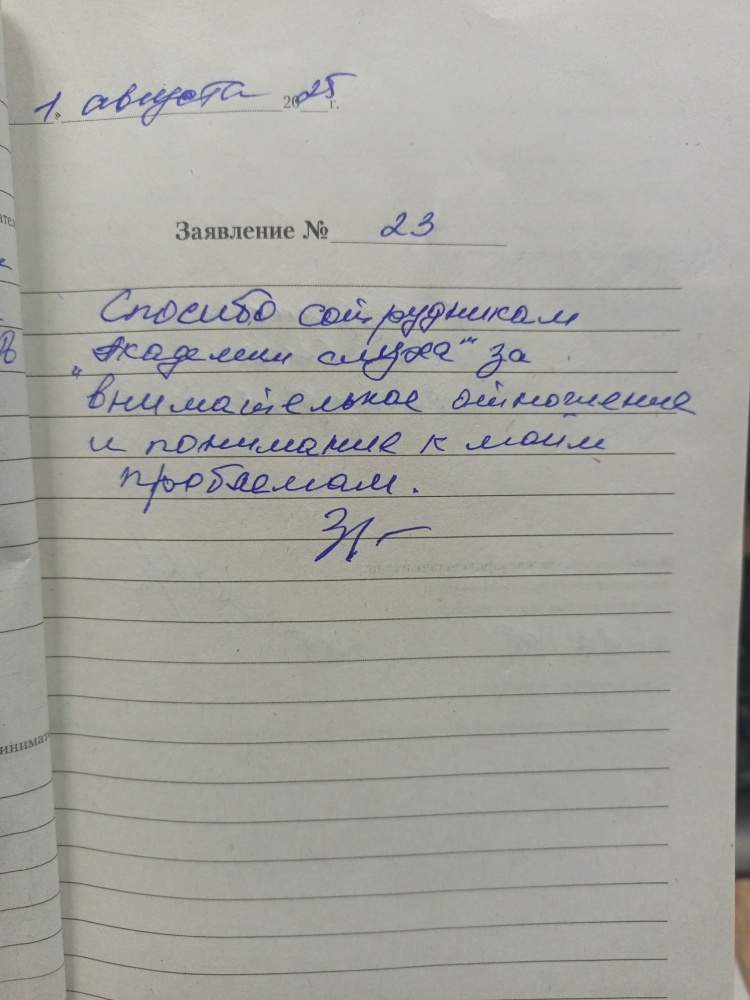 1. августа 2025 г.
Заявление № 23
Спосибо сотрудникам
"Академии слуха" за
внимательное отношение
и понимание к моим
проблемам.